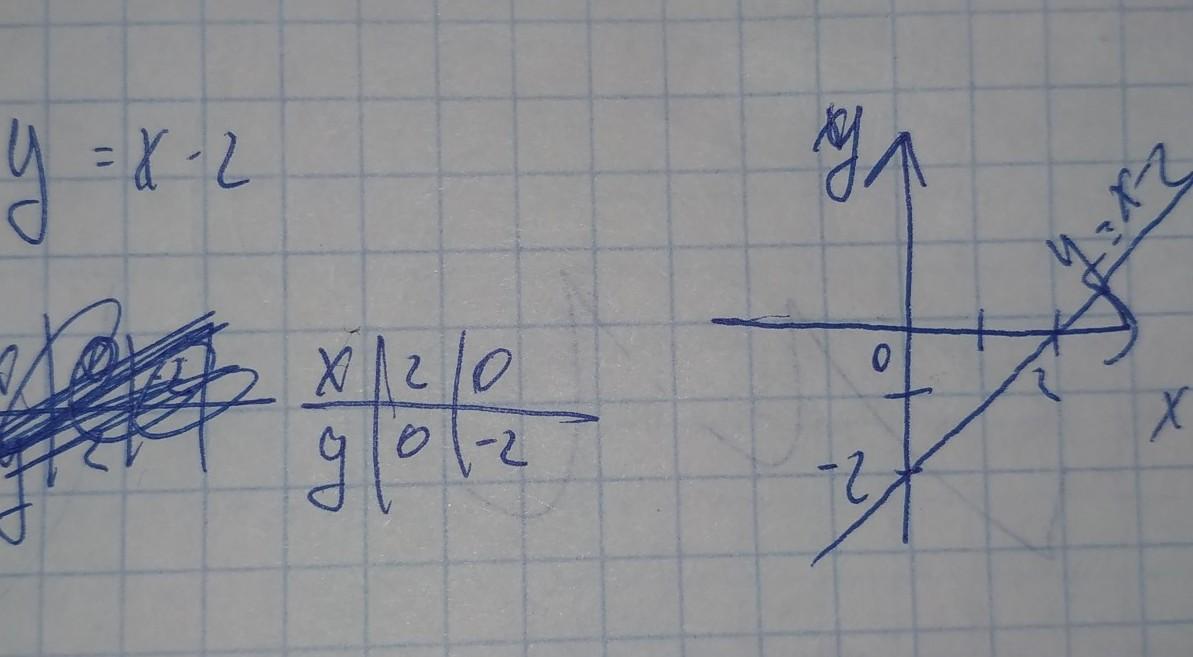 y = x - 2
x | 2 | 0
y | 0 | -2
y
y = x - 2
0
2
x
-2